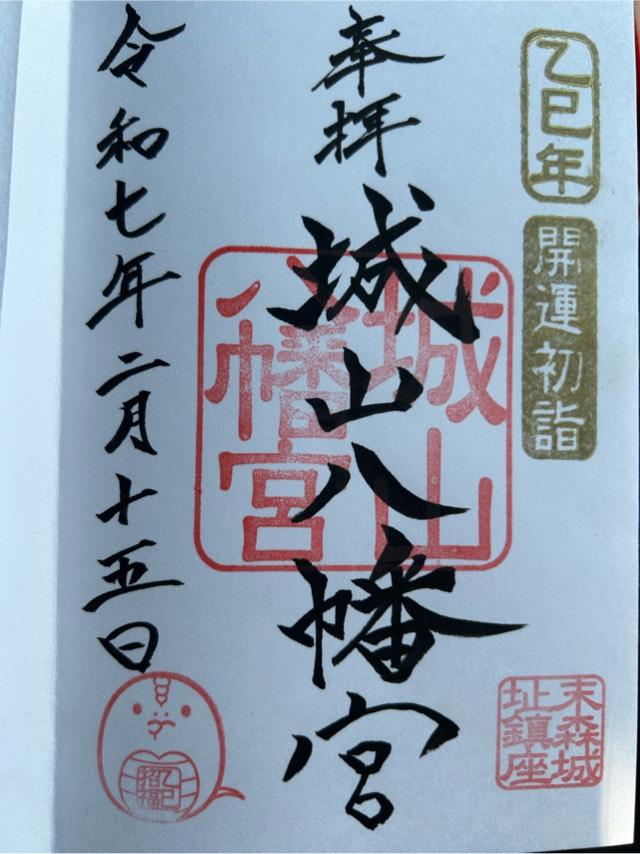 乙巳年
開運初詣
奉拝
城山八幡宮
城山
八幡宮
末森城
址鎮座
令和七年二月十五日
乙巳
招福